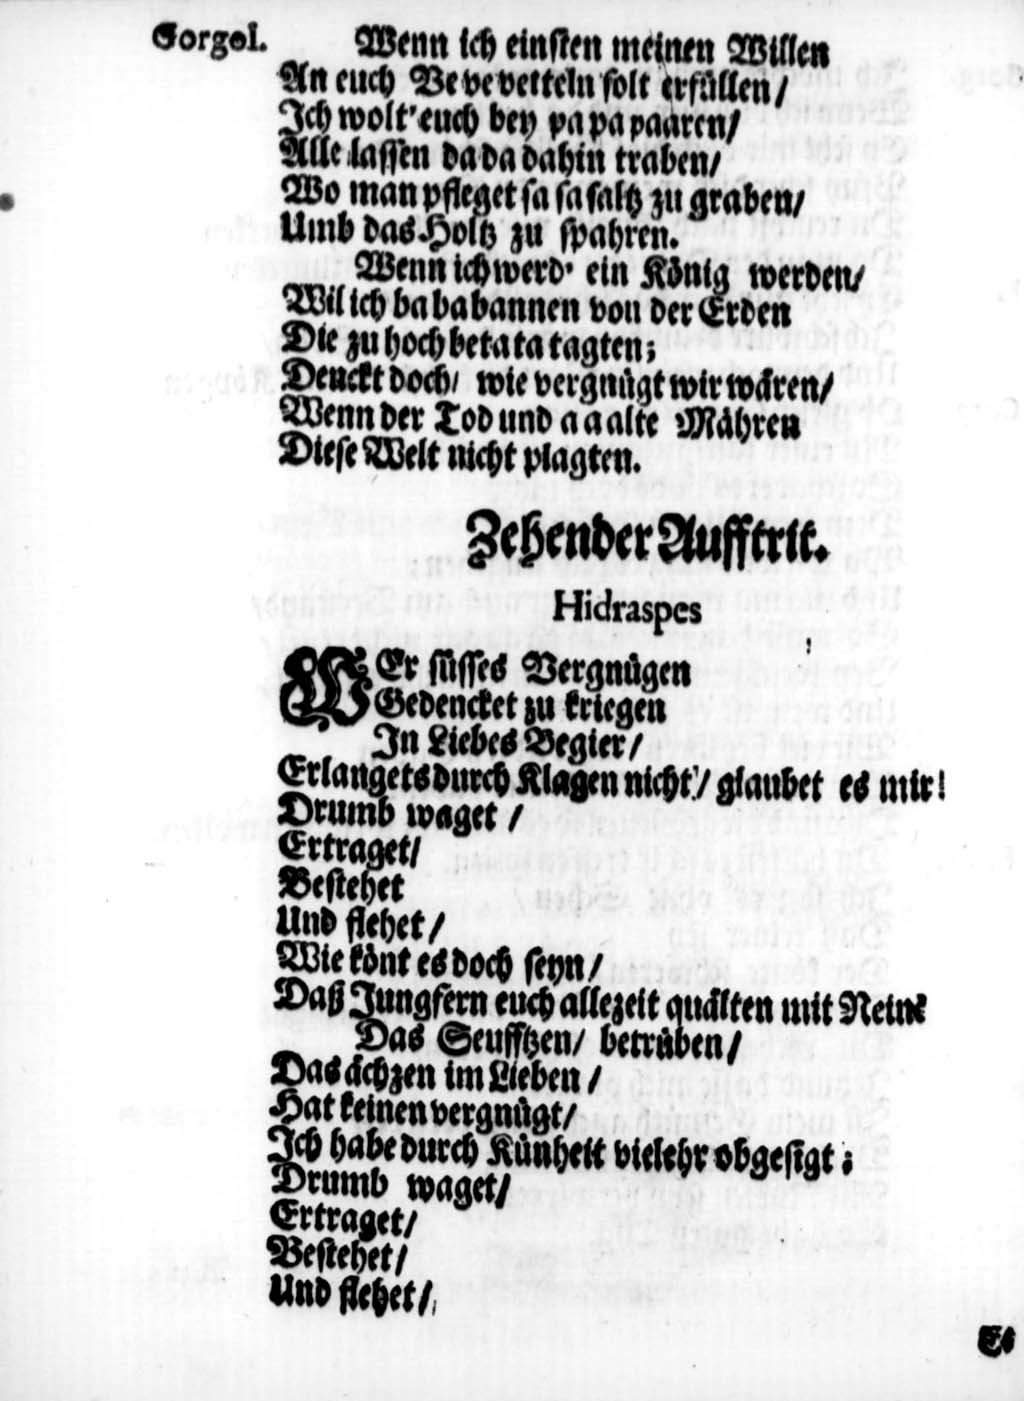 Gorgol. Wenn ich einsten meinen Willen
An euch Ve ve vetteln solt erfüllen/
Ich wolt' euch bey pa pa paaren/
Alle lassen da da dahin traben/
Wo man pfleget sa sa saltz zu graben/
Umb das Holtz zu spahren.
Wenn ich werd' ein König werden/
Wil ich ba ba bannen von der Erden
Die zu hoch beta ta tagten;
Denckt doch/ wie vergnügt wir wären/
Wenn der Tod und a a alte Mähren
Diese Welt nicht plagten.
Zehender Aufftrit.
Hidraspes
WEr süsses Vergnügen
Gedencket zu kriegen
In Liebes Begier/
Erlangets durch Klagen nicht/ glaubet es mir!
Drumb waget /
Ertraget/
Bestehet
Und flehet /
Wie könt es doch seyn /
Daß Jungfern euch allezeit quälten mit Nein?
Das Seufftzen/ betrüben/
Das ächzen im Lieben /
Hat keinen vergnügt/
Ich habe durch Künheit vielehr obgesigt;
Drumb waget/
Ertraget/
Bestehet/
Und flehet/
Es